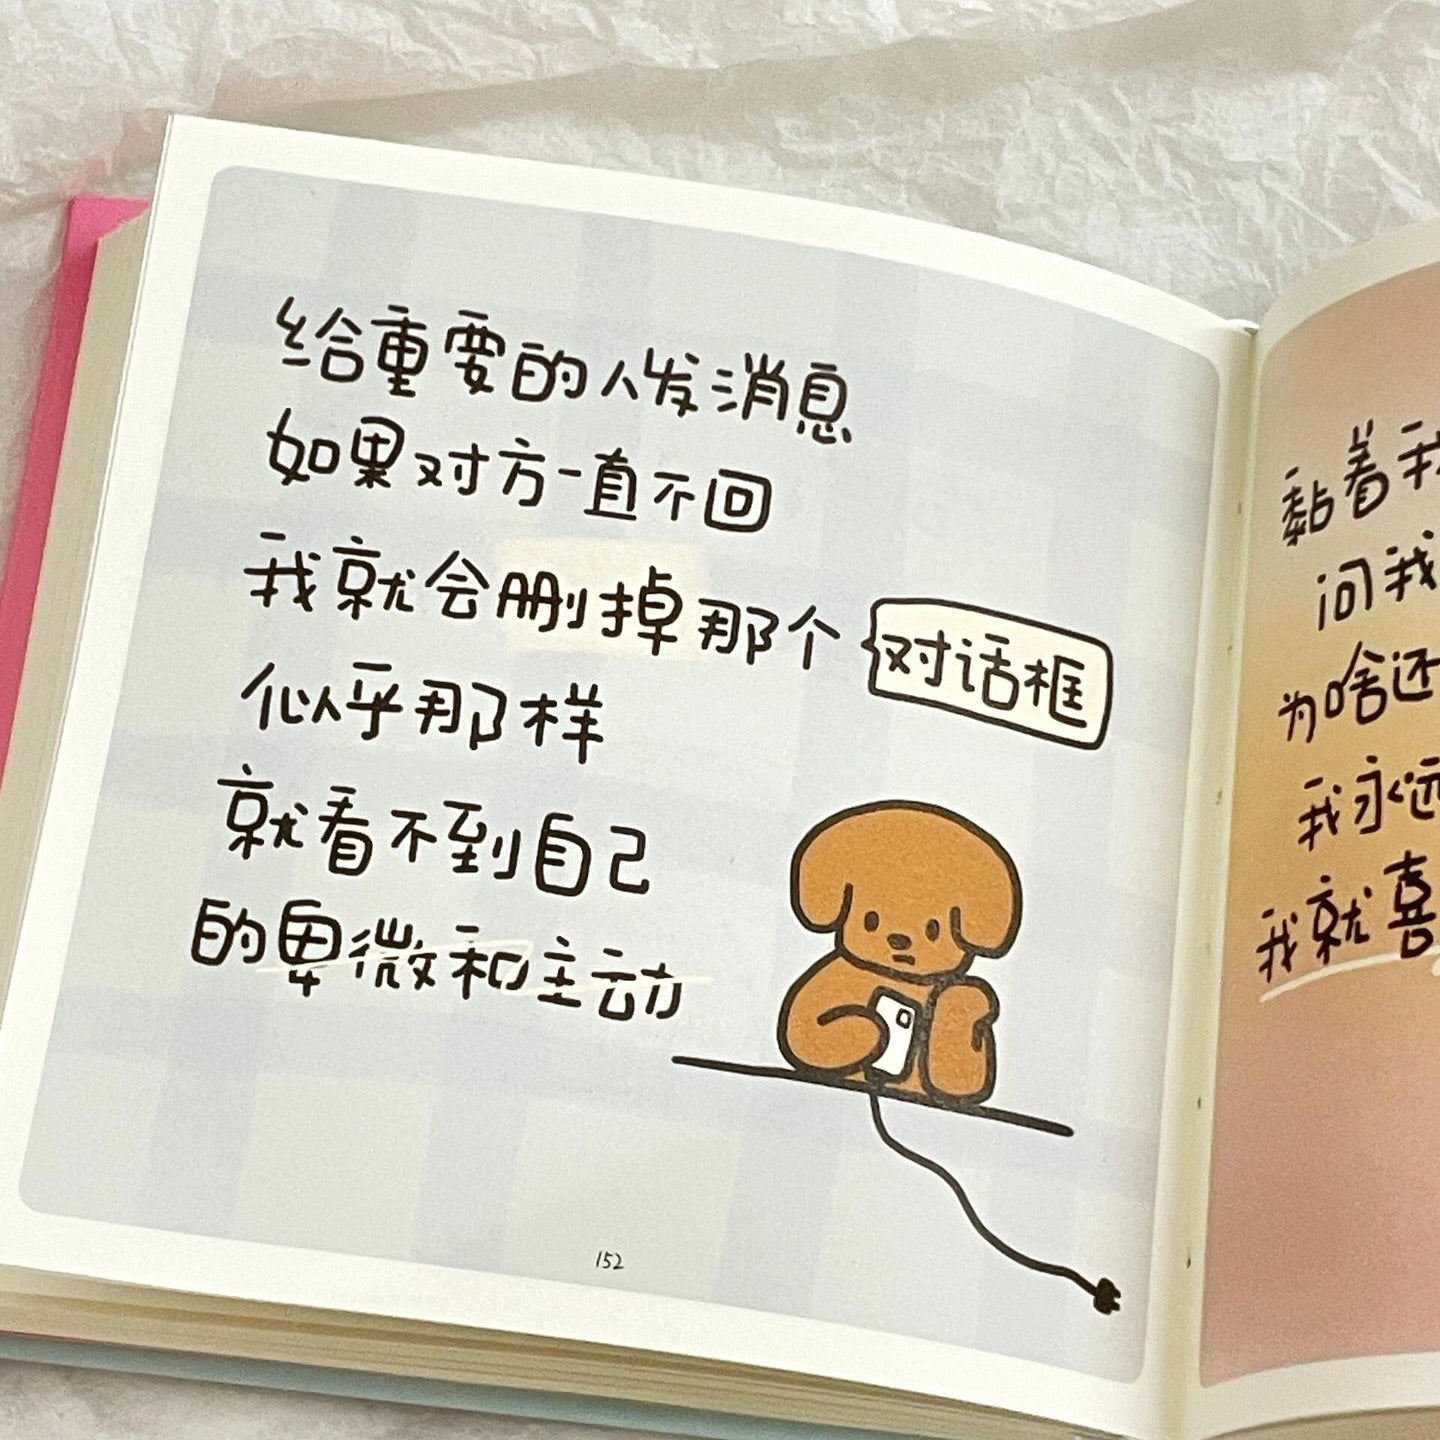 给重要的人发消息
如果对方一直不回
我就会删掉那个对话框
似乎那样
就看不到自己
的卑微和主动
152
黏着我
问我
为啥还
我永远
我就喜